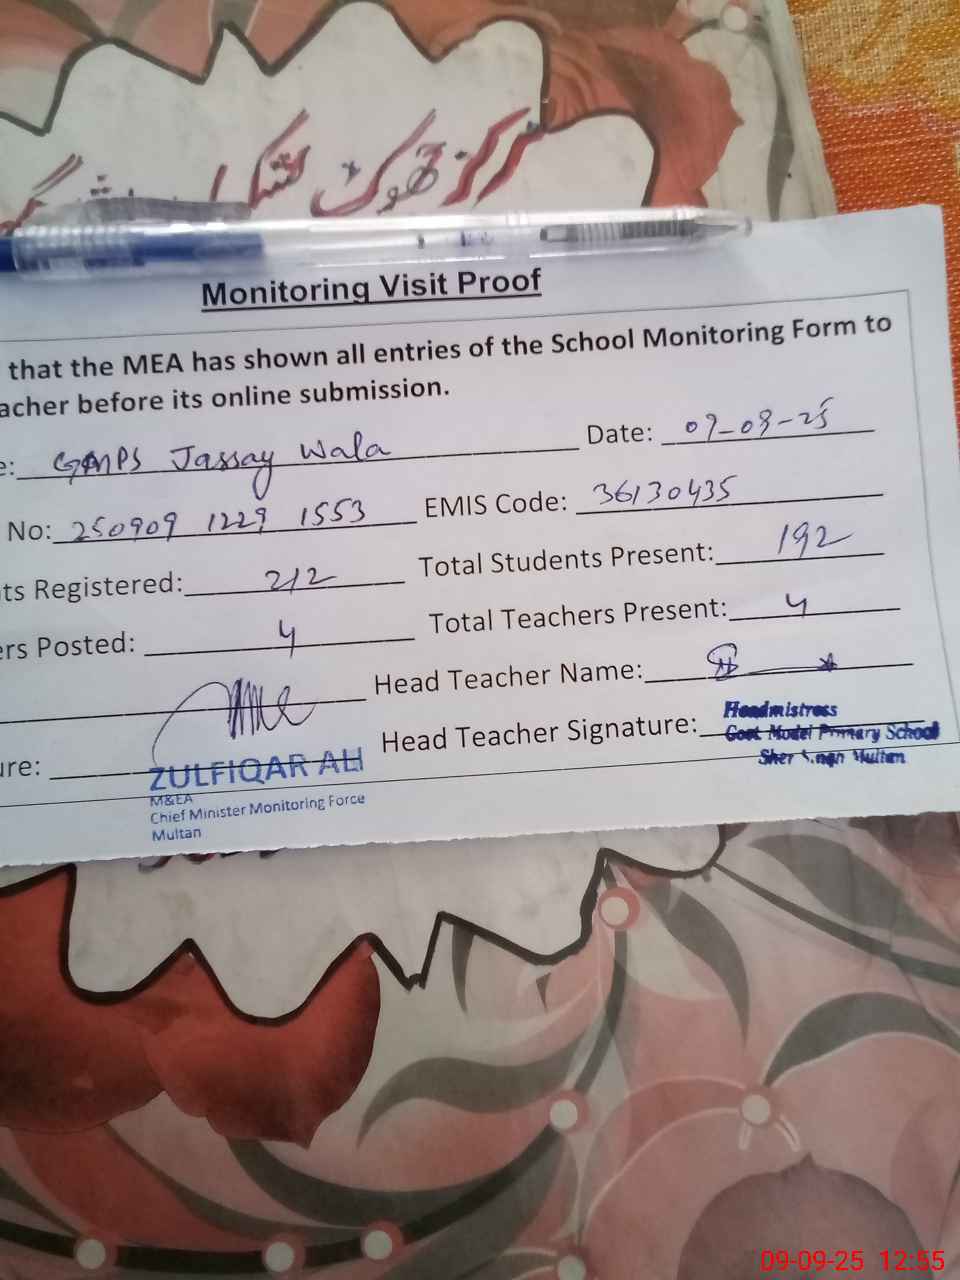 Monitoring Visit Proof
that the MEA has shown all entries of the School Monitoring Form to
acher before its online submission.
e: GMPS Jassay Wala Date: 09-09-25
No: 250909 1229 1553 EMIS Code: 36130435
ts Registered: 212 Total Students Present: 192
ers Posted: 4 Total Teachers Present: 4
Head Teacher Name:
ure: Head Teacher Signature:
ZULFIQAR ALI
M&EA
Chief Minister Monitoring Force
Multan
Headmistress
Govt Model Primary School
Sher Multan
09-09-25 12:55